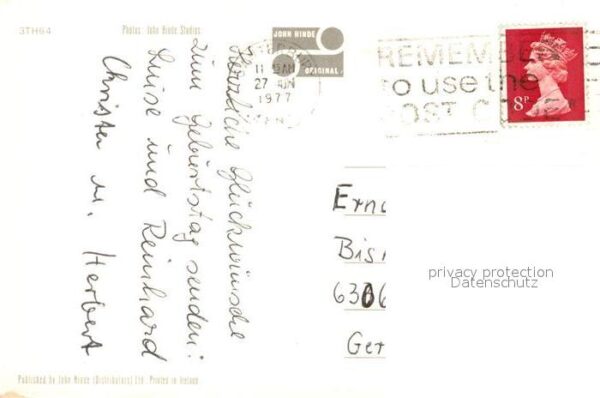 3TH64
Photos: John Hinde Studios
JOHN HINDE
ORIGINAL
11 15AM
27
1977
REMEMBER
to use the
POST C
8P
Herzliche Glückwünsche
zum Geburtstag senden:
Luise und Reinhard
Christa u. Herbert
Ern
Bis
6306
Ger
privacy protection
Datenschutz
Published by John Hinde (Distributors) Ltd. Printed in Ireland